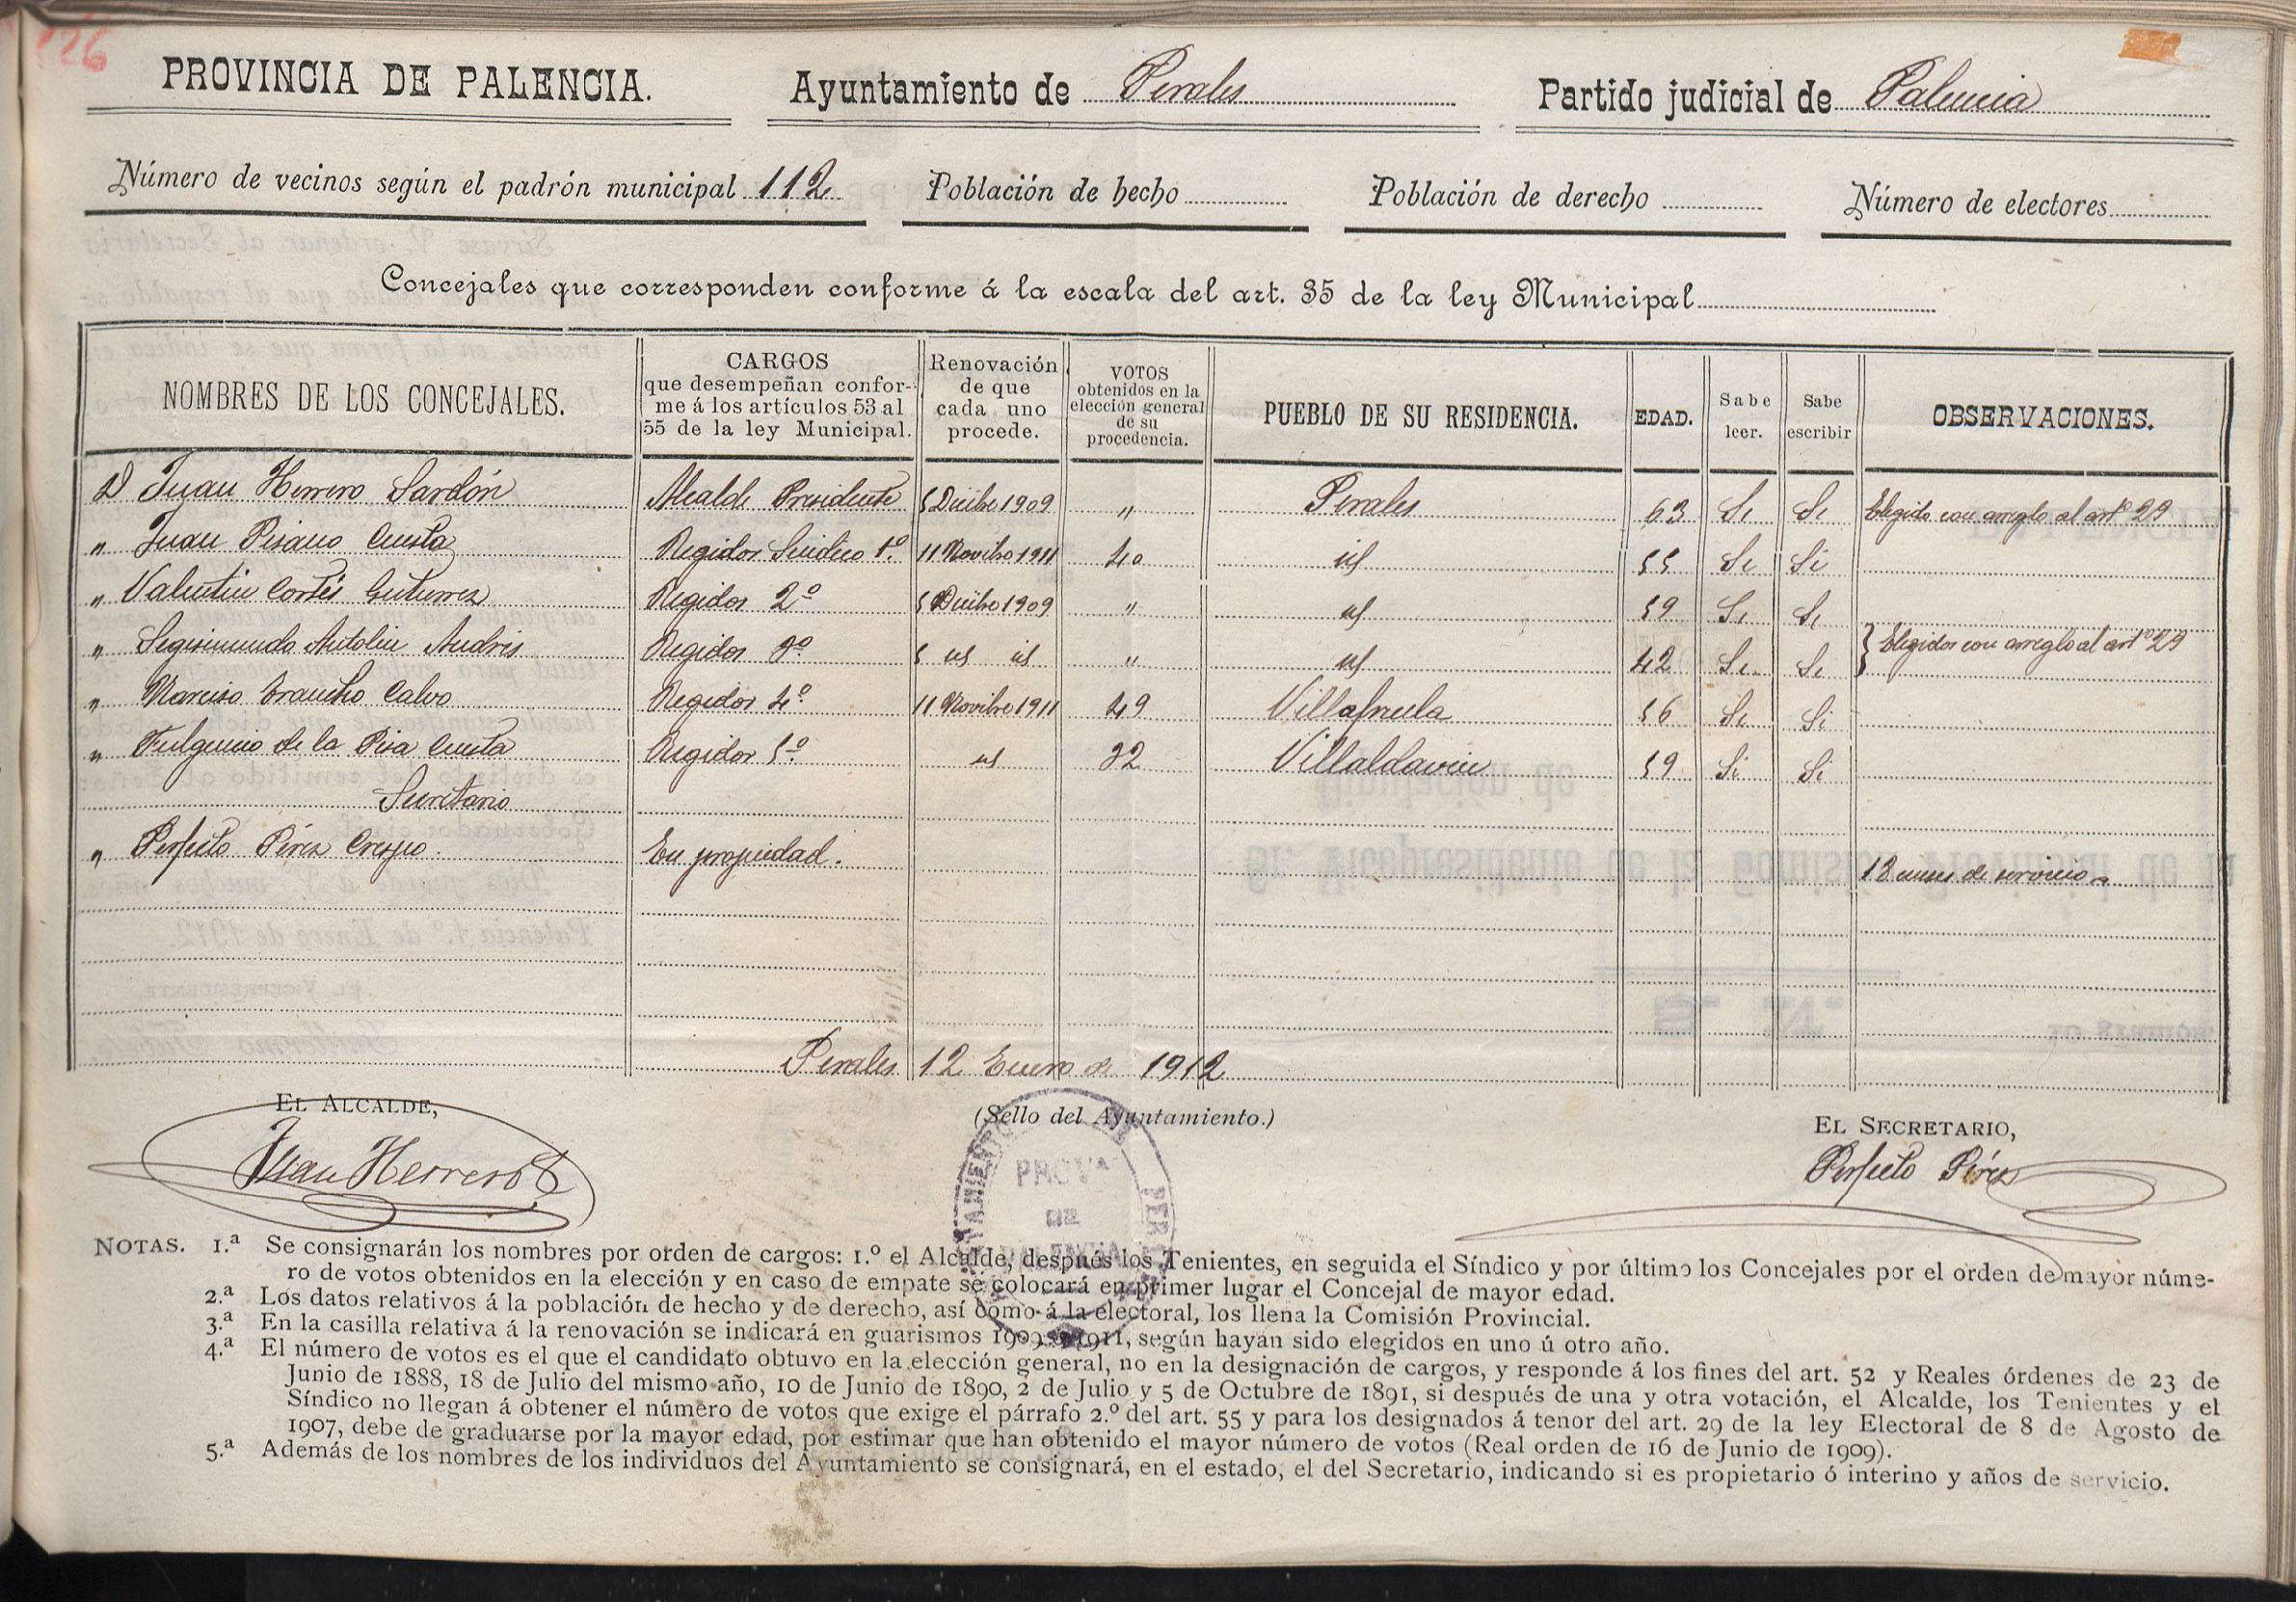 126
PROVINCIA DE PALENCIA. Ayuntamiento de Perales Partido judicial de Palencia
Número de vecinos según el padrón municipal 112 Población de hecho Población de derecho Número de electores
Concejales que corresponden conforme á la escala del art. 35 de la ley Municipal
NOMBRES DE LOS CONCEJALES.
CARGOS
que desempeñan confor-
me á los artículos 53 al
55 de la ley Municipal.
Renovación
de que
cada uno
procede.
VOTOS
obtenidos en la
elección general
de su
procedencia.
PUEBLO DE SU RESIDENCIA.
EDAD.
Sabe
leer.
Sabe
escribir
OBSERVACIONES.
D Juan Herrero Sardón Alcalde Presidente 5 Dicbre 1909 " Perales 63 Si Si Elegido con arreglo al artº 29
" Juan Pisano Cuesta Regidor Sindico 1º. 11 Novibre 1911 40 id 55 Si Si
" Valentin Cortés Gutierrez Regidor 2º 5 Dicbre 1909 " id 59 Si Si
" Segismundo Antolin Andrés Regidor 3º. 5 id id " id 42 Si Si } Elegidos con arreglo al artº 29
" Narciso Calvo Regidor 4º. 11 Novibre 1911 49 Villafruela 56 Si Si
" Fulgencio de la Pisa Cuesta Regidor 5º. id 32 Villaldavin 59 Si Si
Secretario
" Perfecto Pérez Crespo. En propiedad. 18 meses de servicio
Perales 12 Enero de 1912
EL ALCALDE,
Juan Herrero S
(Sello del Ayuntamiento.)
PROVA
DE
PALENCIA
EL SECRETARIO,
Perfecto Pérez
NOTAS. 1.ª Se consignarán los nombres por orden de cargos: 1.º el Alcalde, después los Tenientes, en seguida el Síndico y por último los Concejales por el orden de mayor núme-
ro de votos obtenidos en la elección y en caso de empate se colocará en primer lugar el Concejal de mayor edad.
2.ª Los datos relativos á la población de hecho y de derecho, así como á la electoral, los llena la Comisión Provincial.
3.ª En la casilla relativa á la renovación se indicará en guarismos 1909 ó 1911, según hayan sido elegidos en uno ú otro año.
4.ª El número de votos es el que el candidato obtuvo en la elección general, no en la designación de cargos, y responde á los fines del art. 52 y Reales órdenes de 23 de
Junio de 1888, 18 de Julio del mismo año, 10 de Junio de 1890, 2 de Julio y 5 de Octubre de 1891, si después de una y otra votación, el Alcalde, los Tenientes y el
Síndico no llegan á obtener el número de votos que exige el párrafo 2.º del art. 55 y para los designados á tenor del art. 29 de la ley Electoral de 8 de Agosto de
1907, debe de graduarse por la mayor edad, por estimar que han obtenido el mayor número de votos (Real orden de 16 de Junio de 1909).
5.ª Además de los nombres de los individuos del Ayuntamiento se consignará, en el estado, el del Secretario, indicando si es propietario ó interino y años de servicio.